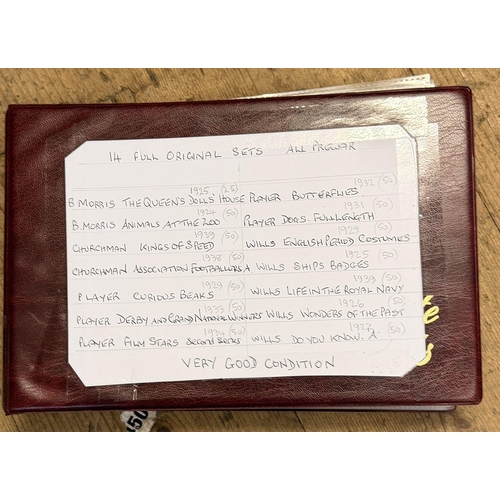 14 FULL ORIGINAL SETS ALL PREWAR
1925 (25) 1932 (50)
B. MORRIS THE QUEEN'S DOLLS' HOUSE PLAYER BUTTERFLIES
1924 (50) 1931 (50)
B. MORRIS ANIMALS AT THE ZOO PLAYER DOGS. FULL LENGTH
1939 (50) 1929 (50)
CHURCHMAN KINGS OF SPEED WILLS ENGLISH PERIOD COSTUMES
1938 (50) 1925 (50)
CHURCHMAN ASSOCIATION FOOTBALLERS A. WILLS SHIPS BADGES
1929 (50) 1939 (50)
PLAYER CURIOUS BEAKS WILLS LIFE IN THE ROYAL NAVY
1933 (50) 1926 (50)
PLAYER DERBY AND GRAND NATIONAL WINNERS WILLS WONDERS OF THE PAST
1934 (50) 1922 (50)
PLAYER FILM STARS SECOND SERIES WILLS DO YOU KNOW. A
VERY GOOD CONDITION